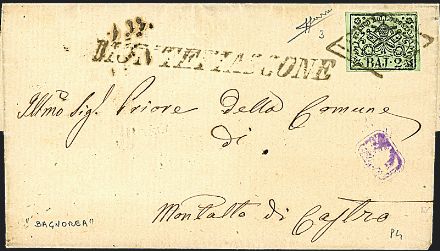 3
MONTEFIASCONE
BAJ. 2
Illmo Sigr Priore Della Comune
di
Montalto di Castro
"BAGNOREA"
P4